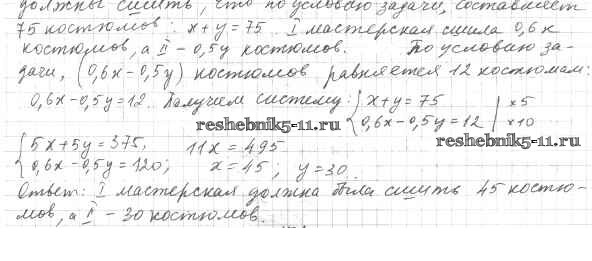 должны сшить, что по условию задачи, составляет
75 костюмов: x + y = 75. I мастерская сшила 0,6x
костюмов, а II – 0,5y костюмов. По условию за-
дачи, (0,6x – 0,5y) костюмов равняется 12 костюмам:
0,6x – 0,5y = 12. Получаем систему: { x + y = 75 | x5
0,6x – 0,5y = 12 | x10
reshebnik5-11.ru
reshebnik5-11.ru
{ 5x + 5y = 375, 11x = 495
0,6x – 0,5y = 120; x = 45; y = 30.
Ответ: I мастерская должна была сшить 45 костю-
мов, а II – 30 костюмов.